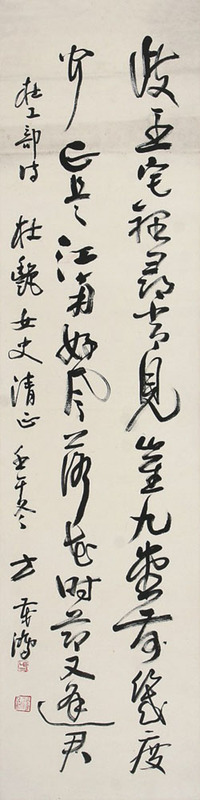 岐王宅裡尋常見崔九堂前幾度
聞正是江南好風落花時節又逢君
杜工部诗 杜艷女史清正 壬午冬 方